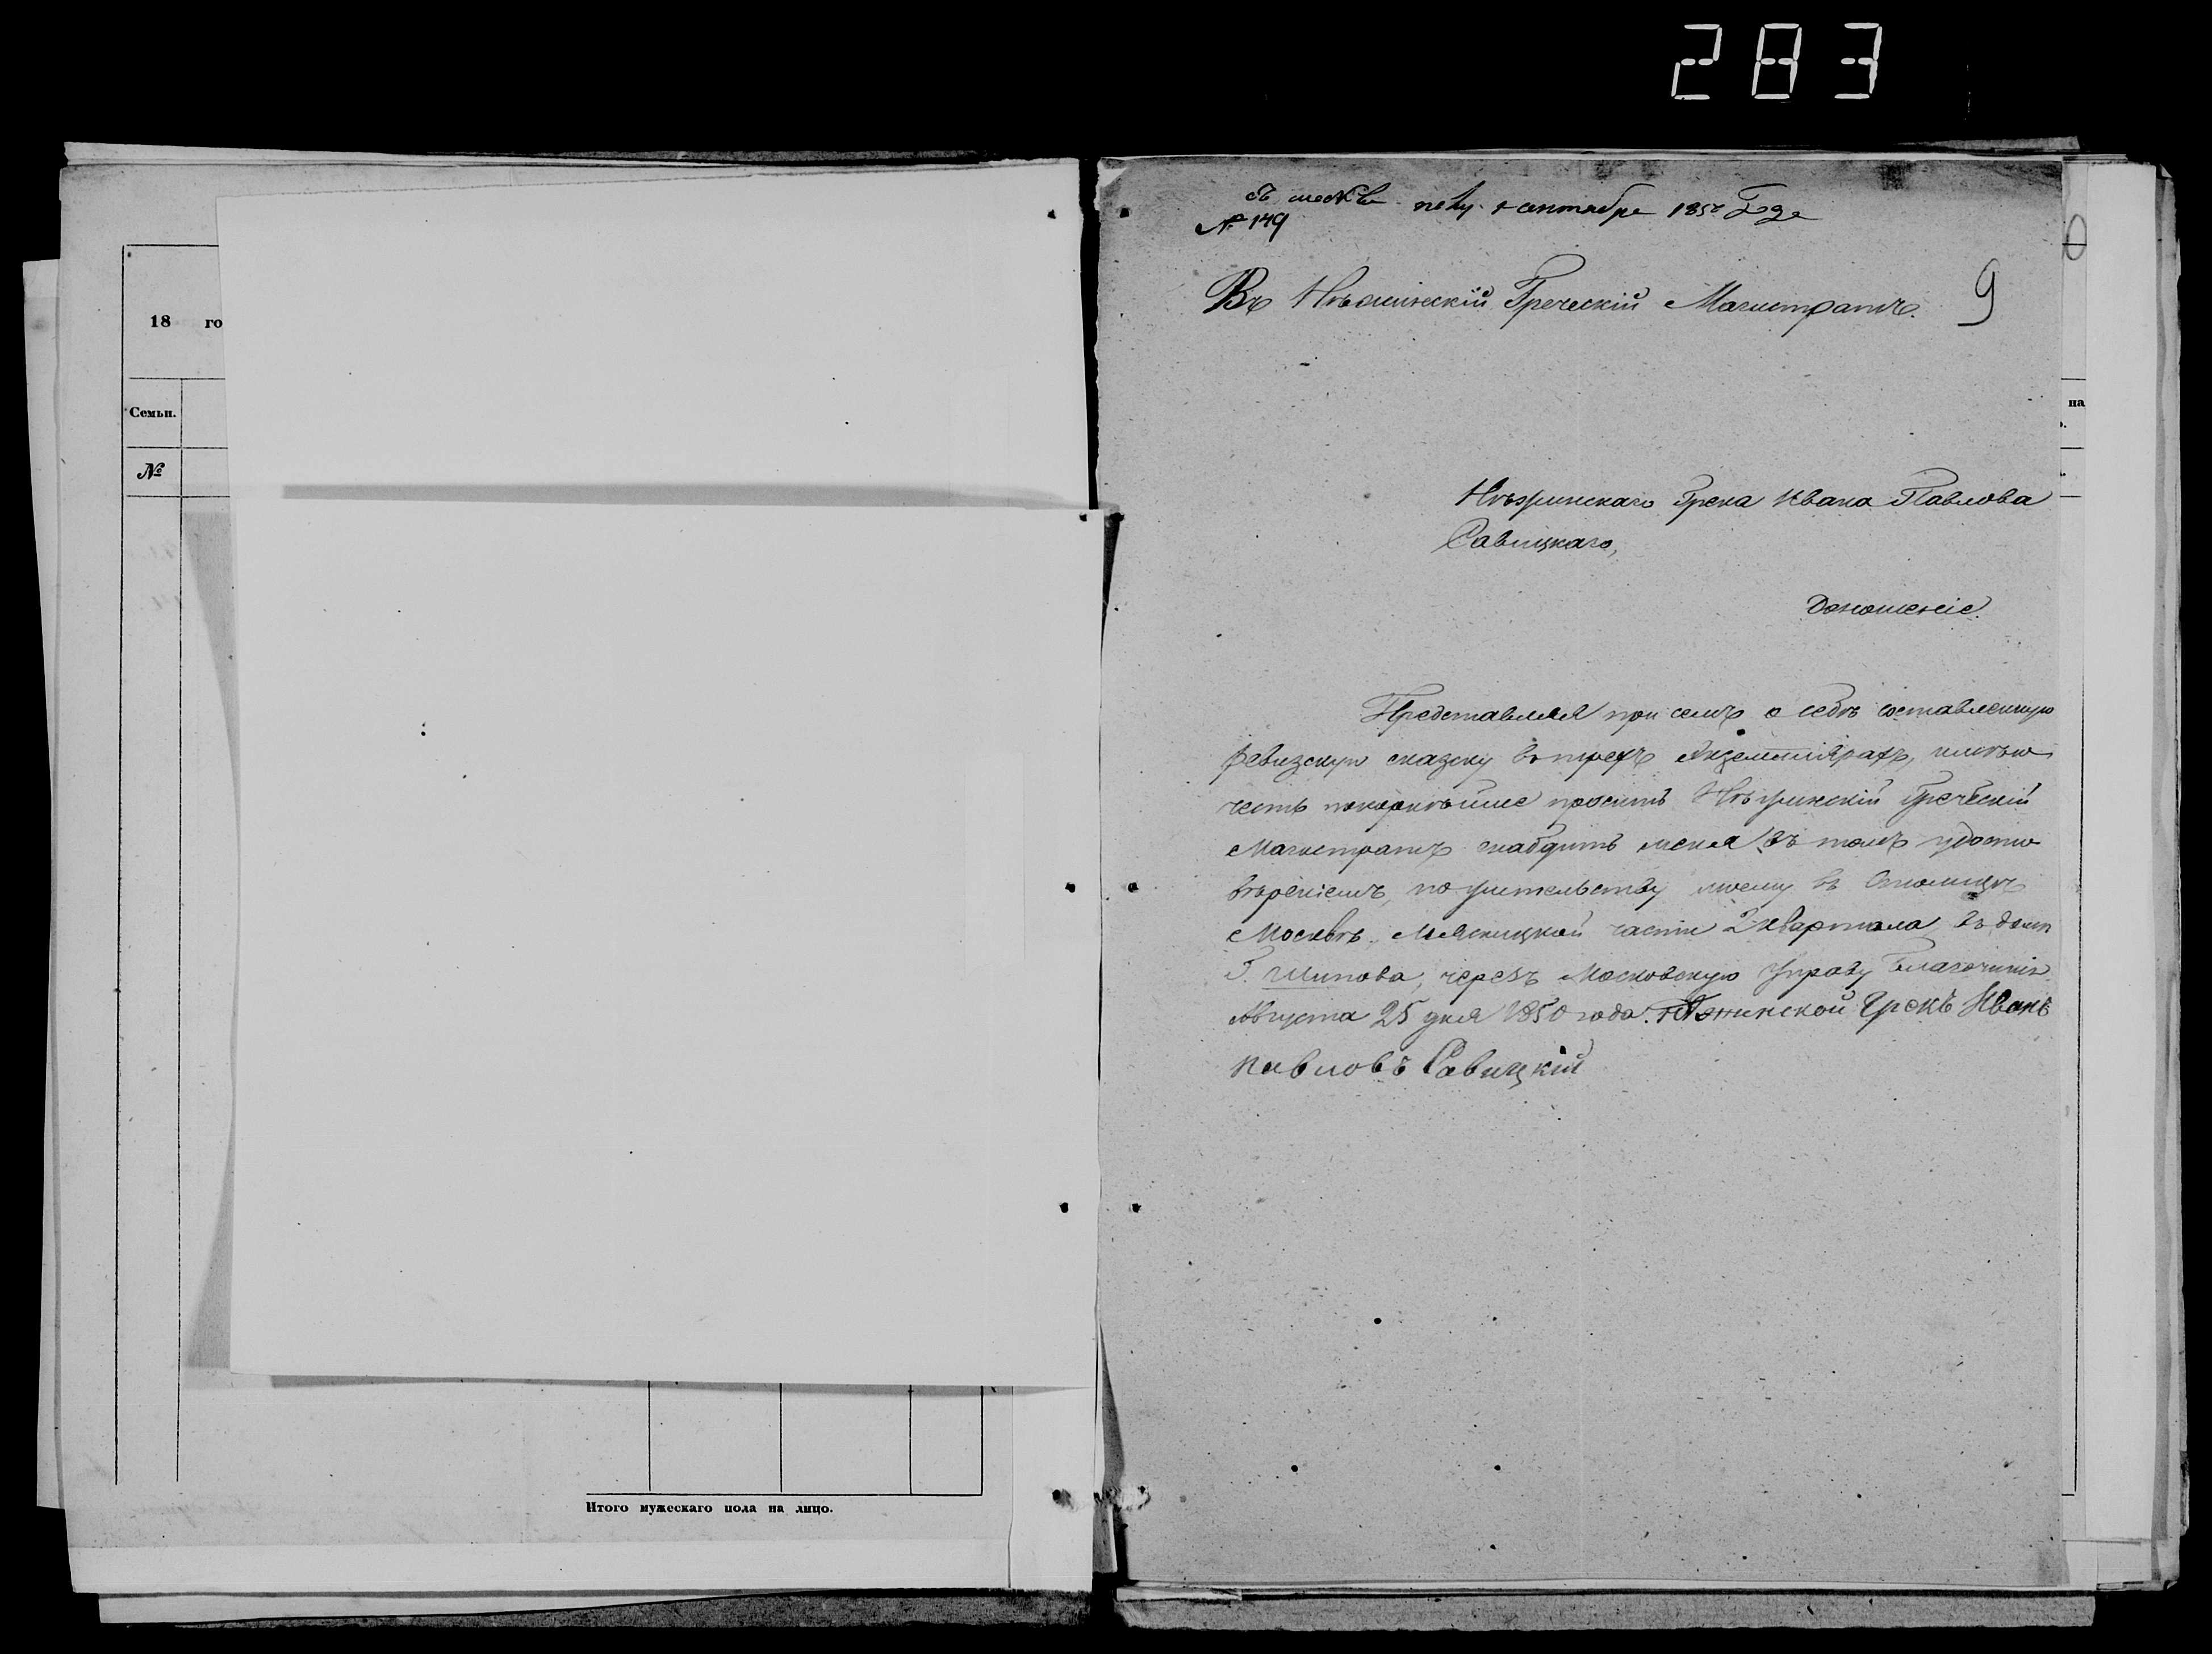 283
18 го
Семьи.
№
Итого мужескаго пола на лицо.
на
0
съ москвы полу. 1 сентября 1850 Года
№ 149
Въ Нѣжинскій Греческій Магистратъ.
9
Нѣжинскаго Грека Ивана Павлова
Савицкаго,
Доношеніе.
Представляя при семъ о себѣ составленную
ревизскую сказку въ трехъ экземплярахъ, имѣю
честь покорнѣйше просить Нѣжинскій Греческій
Магистратъ снабдить меня въ томъ удосто
вѣреніемъ, по жительству моему въ Столицѣ
Москвѣ Мясницкой части 2 квартала въ домѣ
Г. Шипова, черезъ Московскую Управу Благочинія
Августа 25 дня 1850 года. Нѣжинской Грекъ Иванъ
Павловъ Савицкій